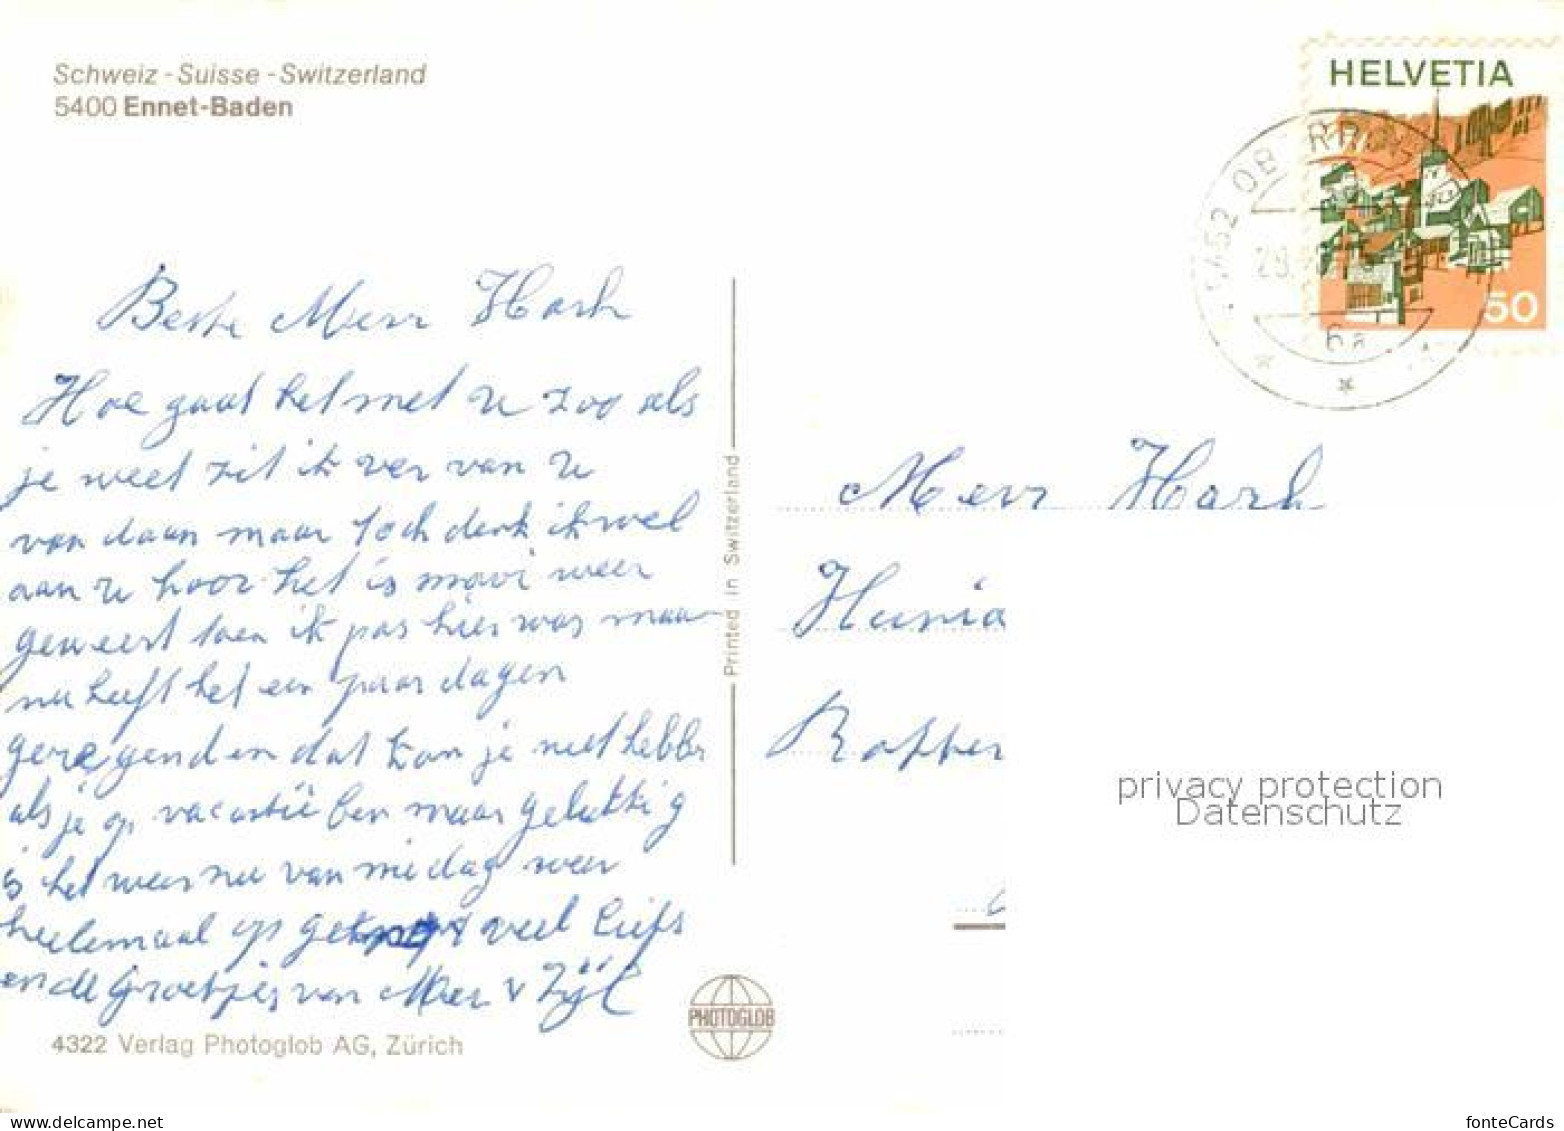 Schweiz - Suisse - Switzerland
5400 Ennet-Baden
HELVETIA
50
5452 OBERROHR
29.
6a
Beste Meur Harh
Hoe gaat het met U zoo als
je weet zit ik ver van U
van daan maar toch denk ik wel
aan U hoor het is mooi weer
geweest toen ik pas hier was maar
nu heeft het een paar dagen
geregend en dat kan je niet hebben
als je op vacantie ben maar gelukkig
is het weer nu van middag weer
heelemaal op veel liefs
en de Groetjes van Meur v Zijl
Meur Harh
Printed in Switzerland
PHOTOGLOB
4322 Verlag Photoglob AG, Zürich
privacy protection
Datenschutz
www.delcampe.net
fonteCards